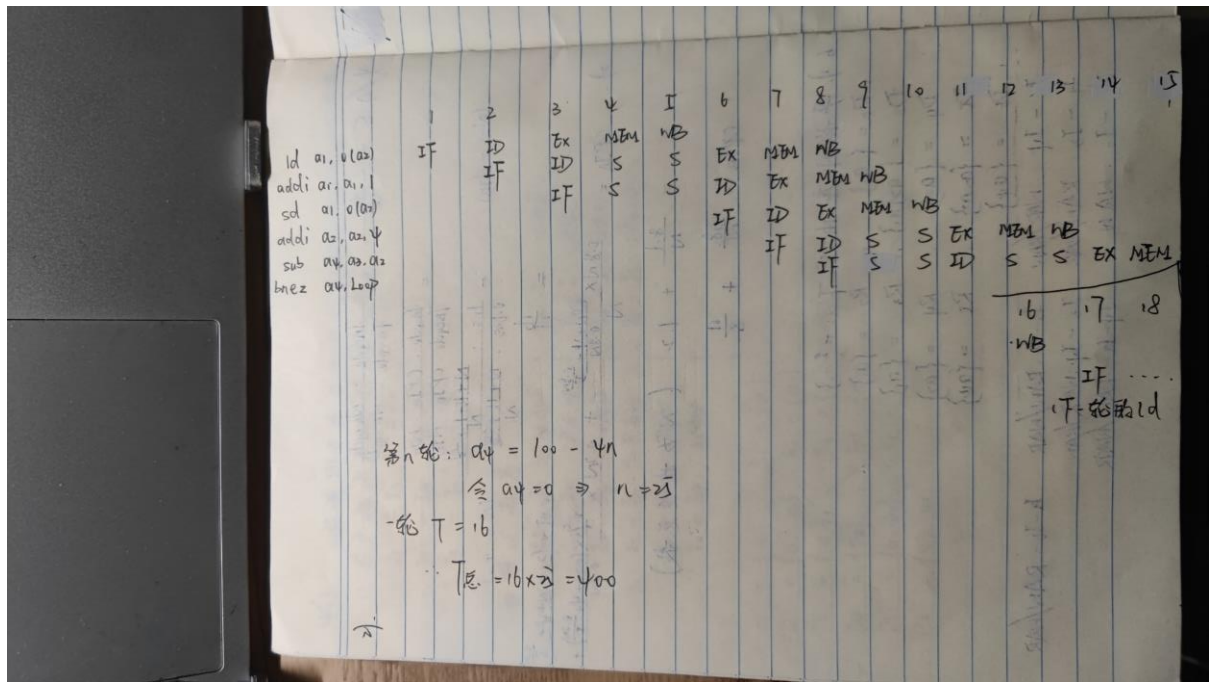 1 2 3 4 5 6 7 8 9 10 11 12 13 14 15
ld a1, 0(a2) IF ID EX MEM WB
addi a1, a1, 1 IF ID S S EX MEM WB
sd a1, 0(a2) IF S S ID EX MEM WB
addi a2, a2, 4 IF ID EX MEM WB
sub a4, a3, a2 IF ID S S EX MEM WB
bnez a4, Loop IF S S ID S S EX MEM
16 17 18
WB
IF ....
下一轮的ld
第n轮: a4 = 100 - 4n
令 a4=0 ⇒ n=25
一轮 T = 16
T总 = 16×25 = 400